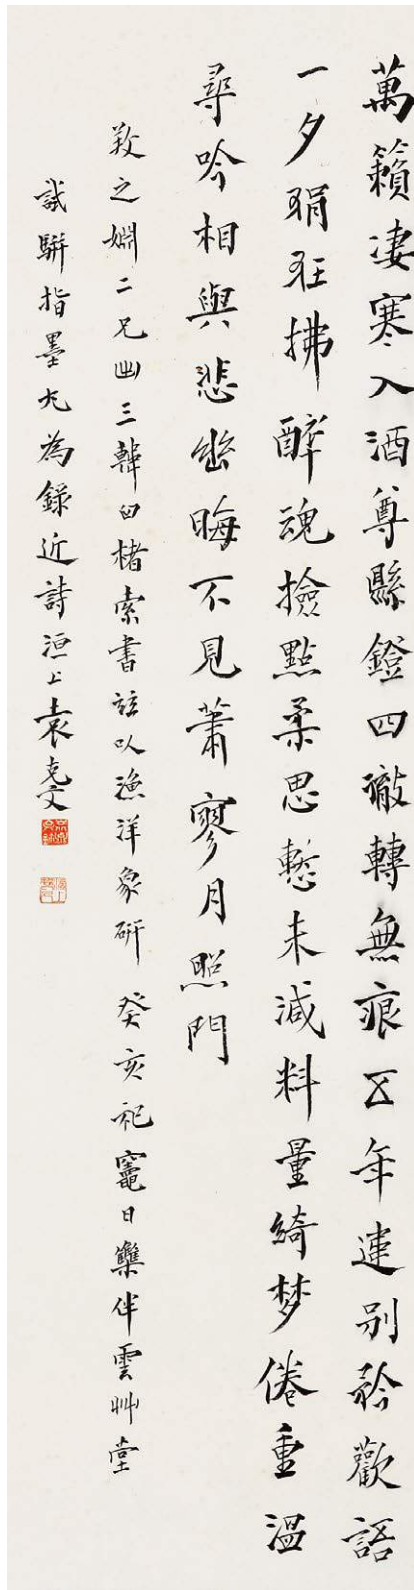 萬籟淒寒入酒尊縣鐙四徹轉無痕𠄡年連別矜歡語
一夕狷狂拂醉魂撿點柔思慙未減料量綺梦倦重溫
尋吟相與悲幽晦不見蕭寥月照門
之嫻二兄出三韓田楮索書謹以漁洋象研癸亥祀竈日樂伴雲艸堂
試駢指墨為錄近詩洹上袁克文